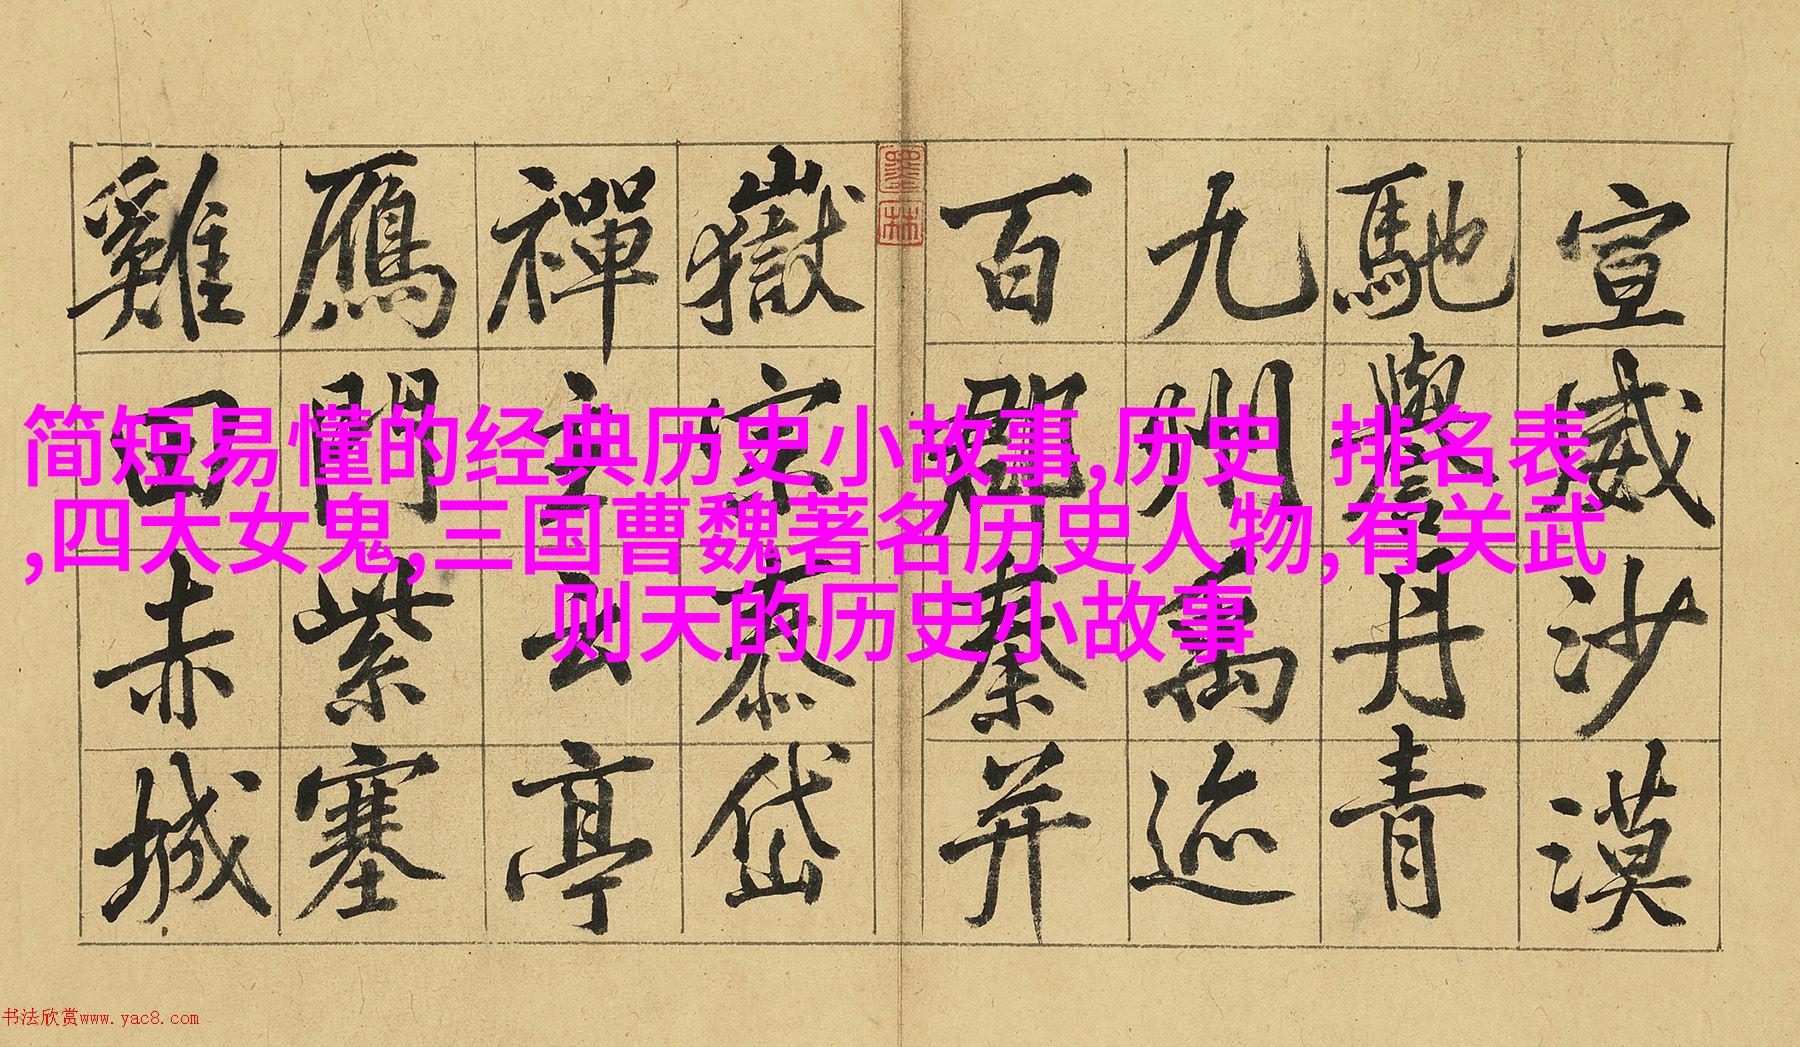 宣威沙漠
馳譽丹青
九州禹迹
百郡秦并
嶽宗泰岱
禪主云亭
鴈門紫塞
雞田赤城
墨林
简短易懂的经典历史小故事,历史 排名表
,四大女鬼,三国曹魏著名历史人物,有关武
则天的历史小故事
书法欣赏www.yac8.com